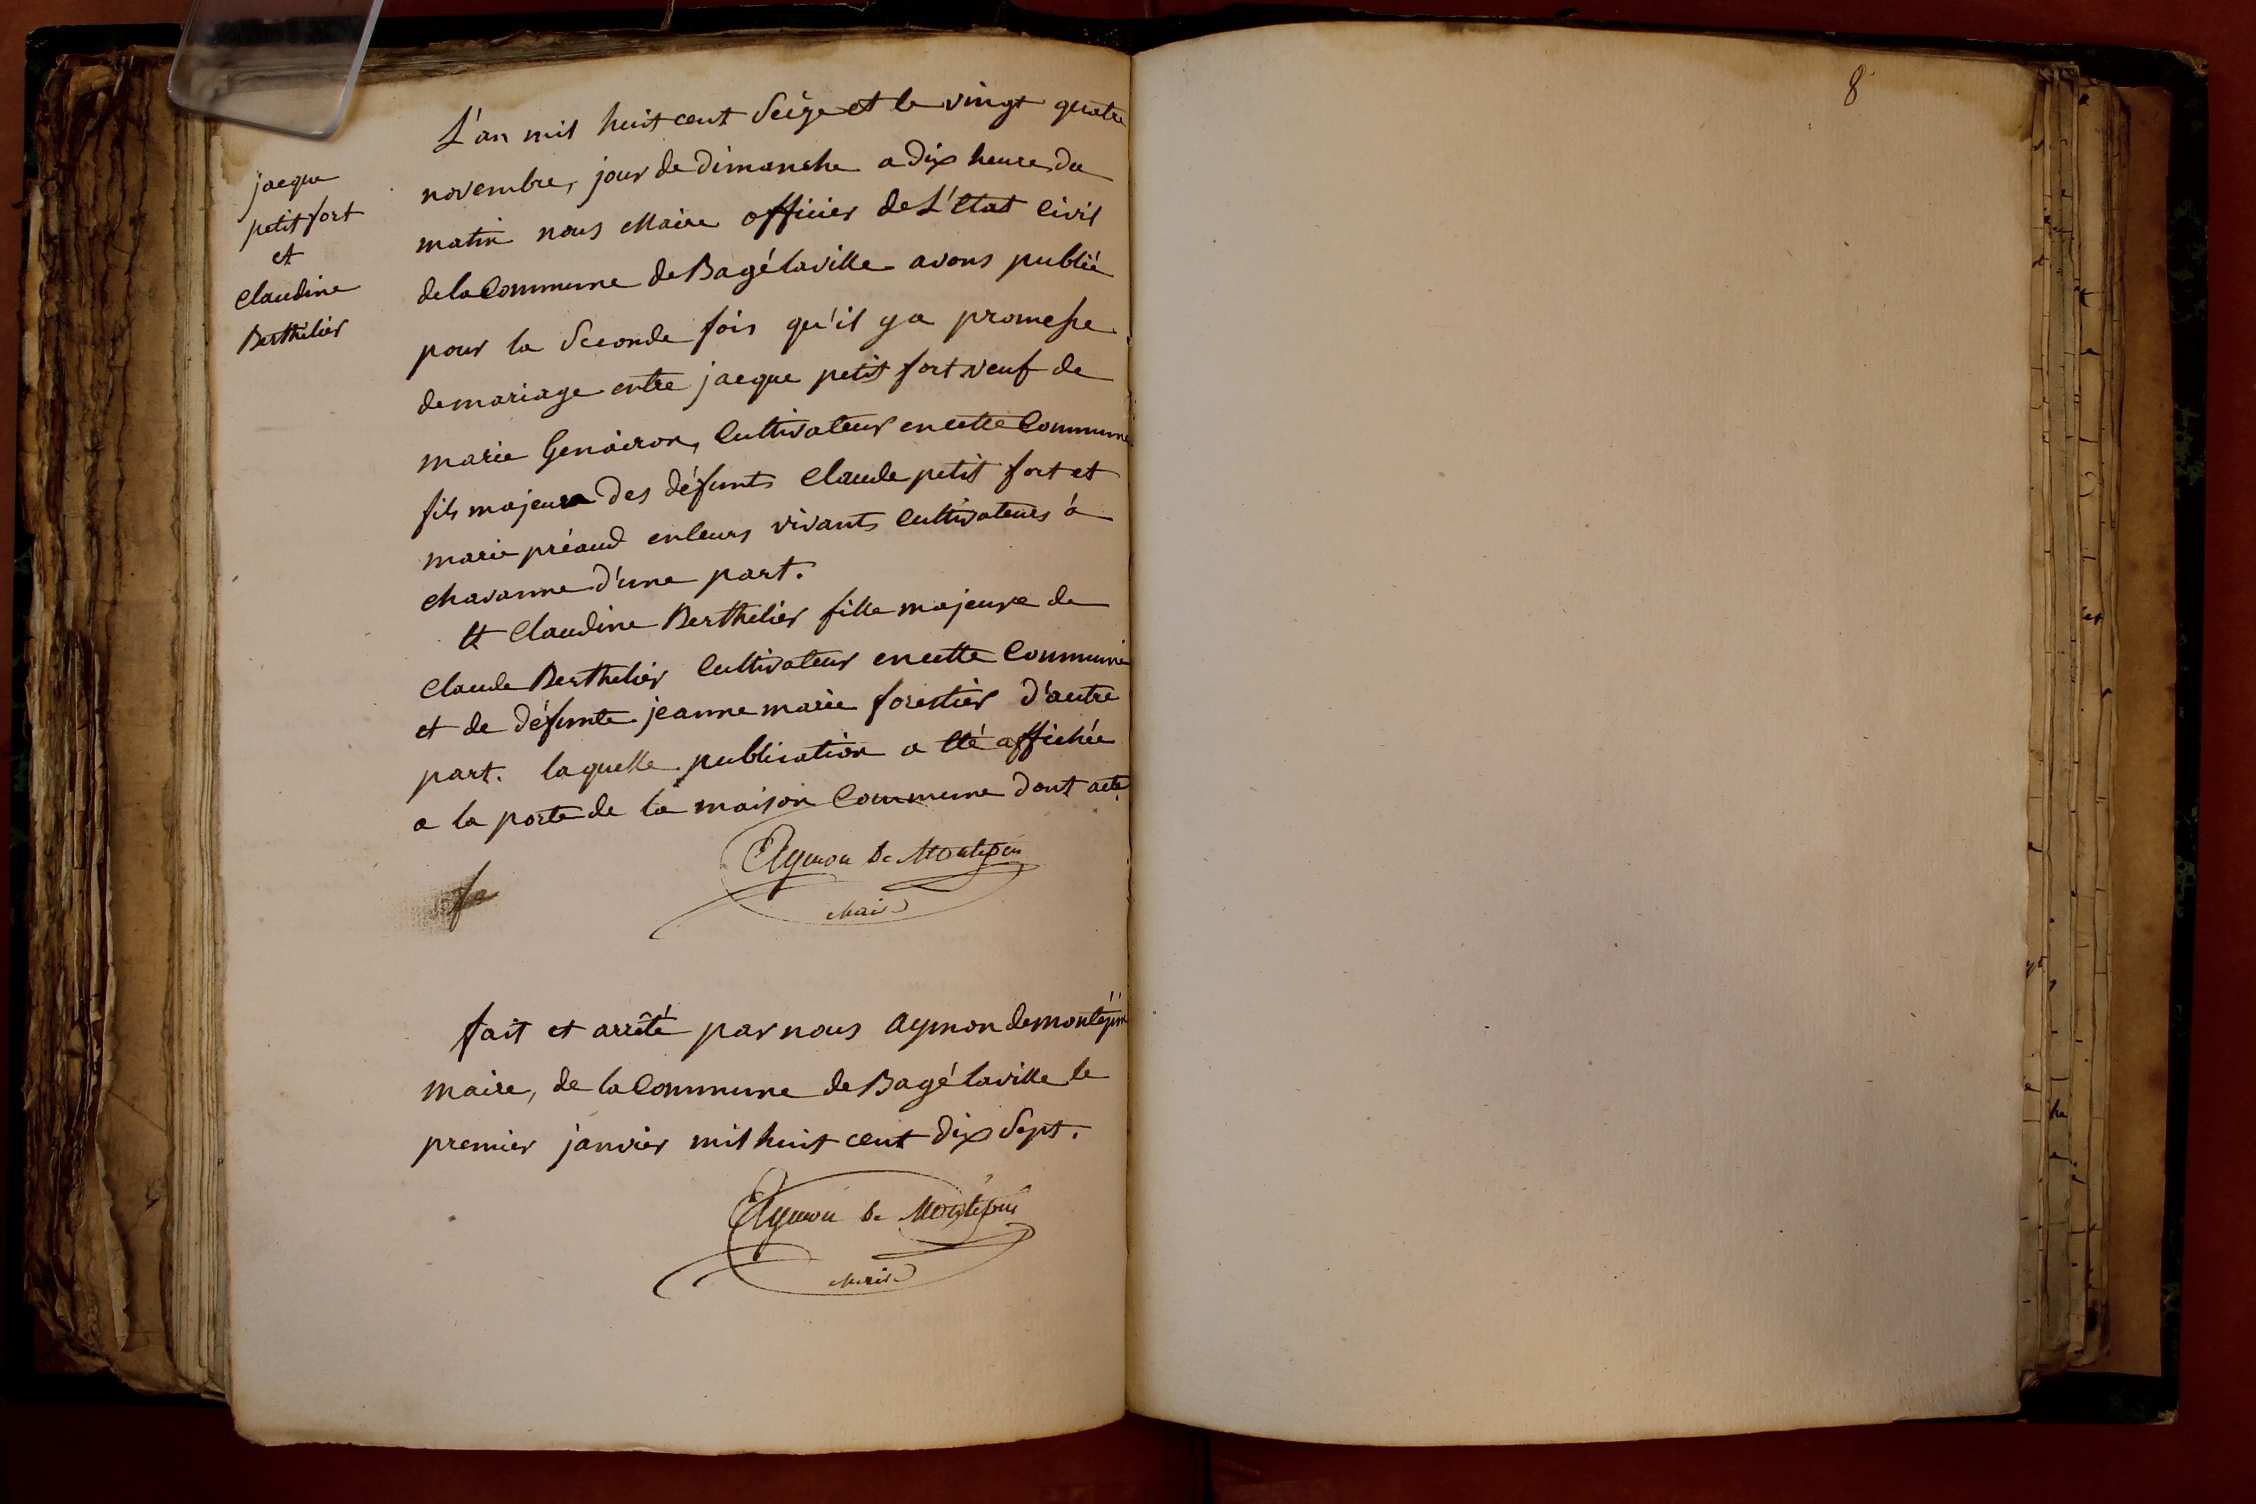 jacque
petit fort
et
claudine
Berthelier
L'an mil huit cent Seize et le vingt quatre
novembre, jour de Dimanche a dix heure du
matin nous Maire officier de L'Etat Civil
de la Commune de Bagé la ville avons publié
pour la Seconde fois qu'il y a promesse
de mariage entre jacque petit fort veuf de
marie Cultivateur en cette Commune
fils majeur des défunts Claude petit fort et
marie préaud en leurs vivants Cultivateurs à
chavanne d'une part.
Et Claudine Berthelier fille majeure de
Claude Berthelier Cultivateur en cette Commune
et de défunte jeanne marie forestier d'autre
part. laquelle publication a été affichée
a la porte de la maison Commune dont acte
Aymon de Montepin
Maire
fait et arrêté par nous aymon de montépin
maire, de la Commune de Bagé la ville le
premier janvier mil huit cent dix Sept.
Aymon de Montepin
Maire
8